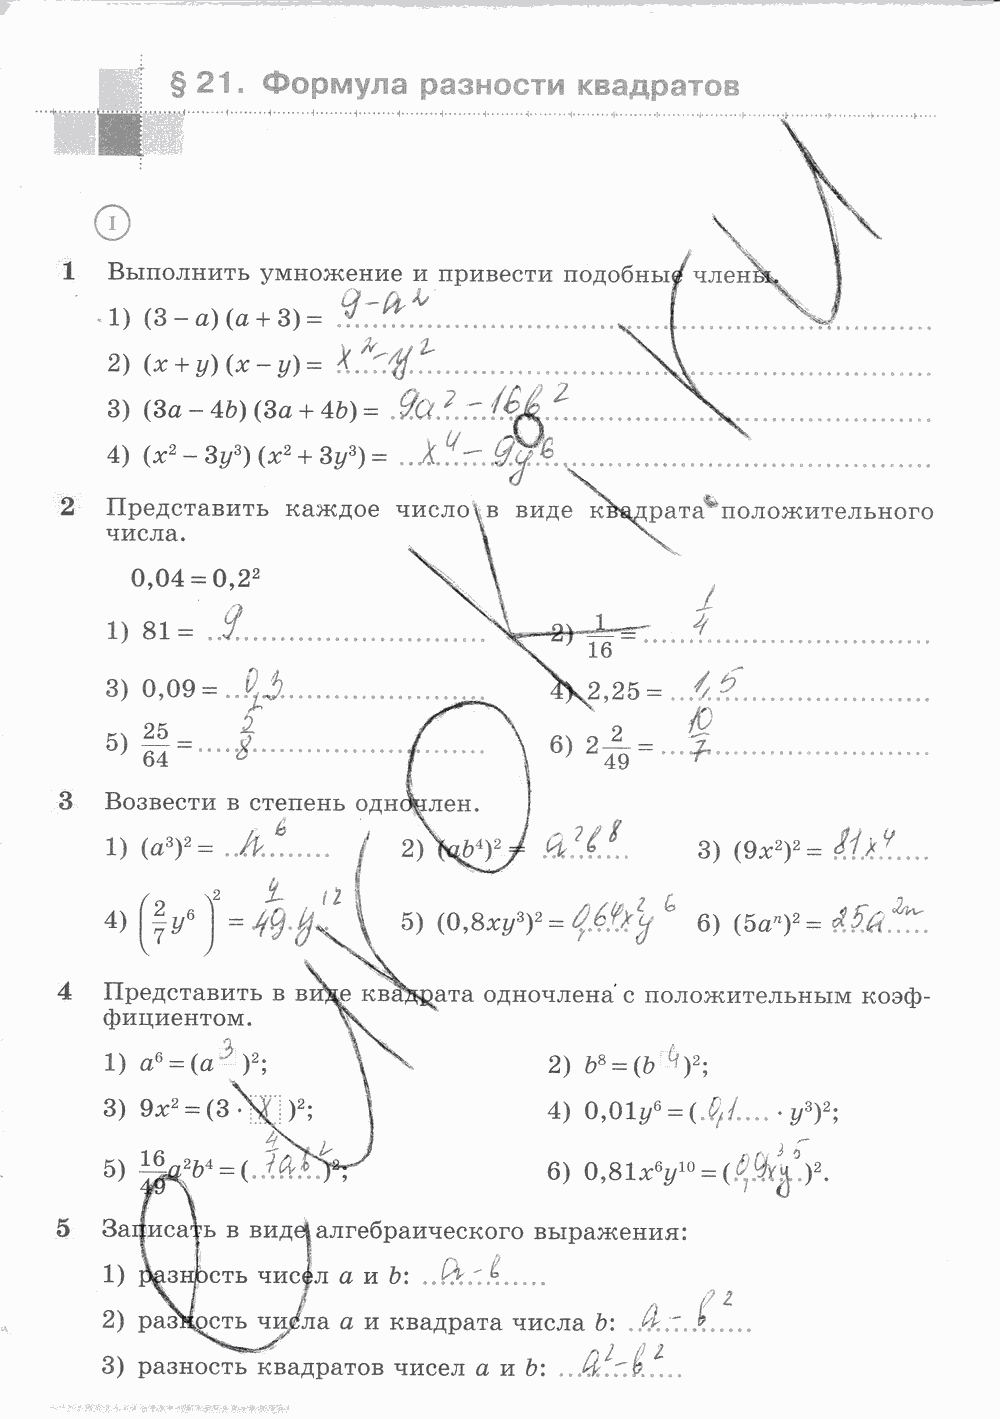 § 21. Формула разности квадратов
I
1 Выполнить умножение и привести подобные члены.
1) (3 − a)(a + 3) = 9 − a²
2) (x + y)(x − y) = x² − y²
3) (3a − 4b)(3a + 4b) = 9a² − 16b²
4) (x² − 3y³)(x² + 3y³) = x⁴ − 9y⁶
2 Представить каждое число в виде квадрата положительного
числа.
0,04 = 0,2²
1) 81 = 9 2) 1/16 = 1/4
3) 0,09 = 0,3 4) 2,25 = 1,5
5) 25/64 = 5/8 6) 2 2/49 = 10/7
3 Возвести в степень одночлен.
1) (a³)² = a⁶ 2) (ab⁴)² = a²b⁸ 3) (9x²)² = 81x⁴
4) (2/7 y⁶)² = 4/49 y¹² 5) (0,8xy³)² = 0,64x²y⁶ 6) (5aⁿ)² = 25a²ⁿ
4 Представить в виде квадрата одночлена с положительным коэф-
фициентом.
1) a⁶ = (a³)²; 2) b⁸ = (b⁴)²;
3) 9x² = (3 · x)²; 4) 0,01y⁶ = (0,1 · y³)²;
5) 16/49 a²b⁴ = (4/7 ab²)²; 6) 0,81x⁶y¹⁰ = (0,9x³y⁵)².
5 Записать в виде алгебраического выражения:
1) разность чисел a и b: a − b
2) разность числа a и квадрата числа b: a − b²
3) разность квадратов чисел a и b: a² − b²